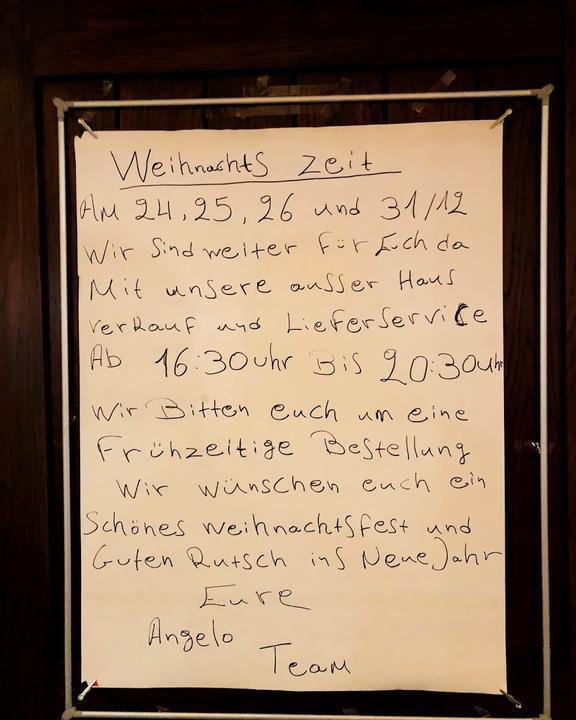 Weihnachts zeit
Am 24, 25, 26 und 31/12
Wir Sind weiter für Euch da
Mit unsere ausser Haus
verkauf und Lieferservice
Ab 16:30 uhr Bis 20:30 uhr
Wir Bitten euch um eine
Frühzeitige Bestellung
Wir wünschen euch ein
Schönes weihnachtsfest und
Guten Rutsch ins Neue Jahr
Eure
Angelo
Team